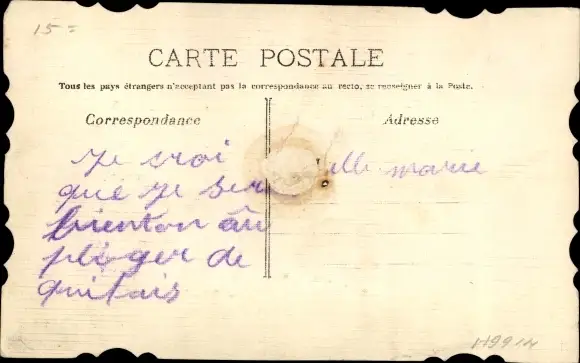 15=
CARTE POSTALE
Tous les pays étrangers n'acceptant pas la correspondance au recto, se renseigner à la Poste.
Correspondance
Adresse
Je croi
que je ser
bienton au
pléger de
Mlle marie